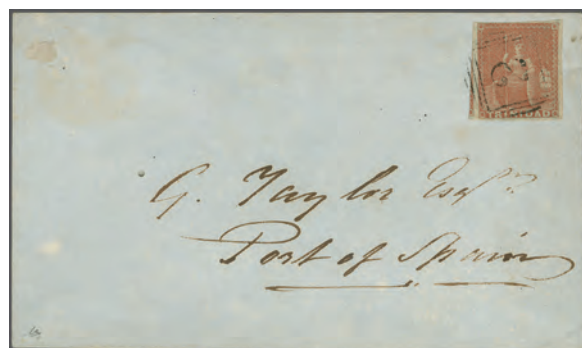 TRINIDAD
G. Taylor Esqr.
Port of Spain